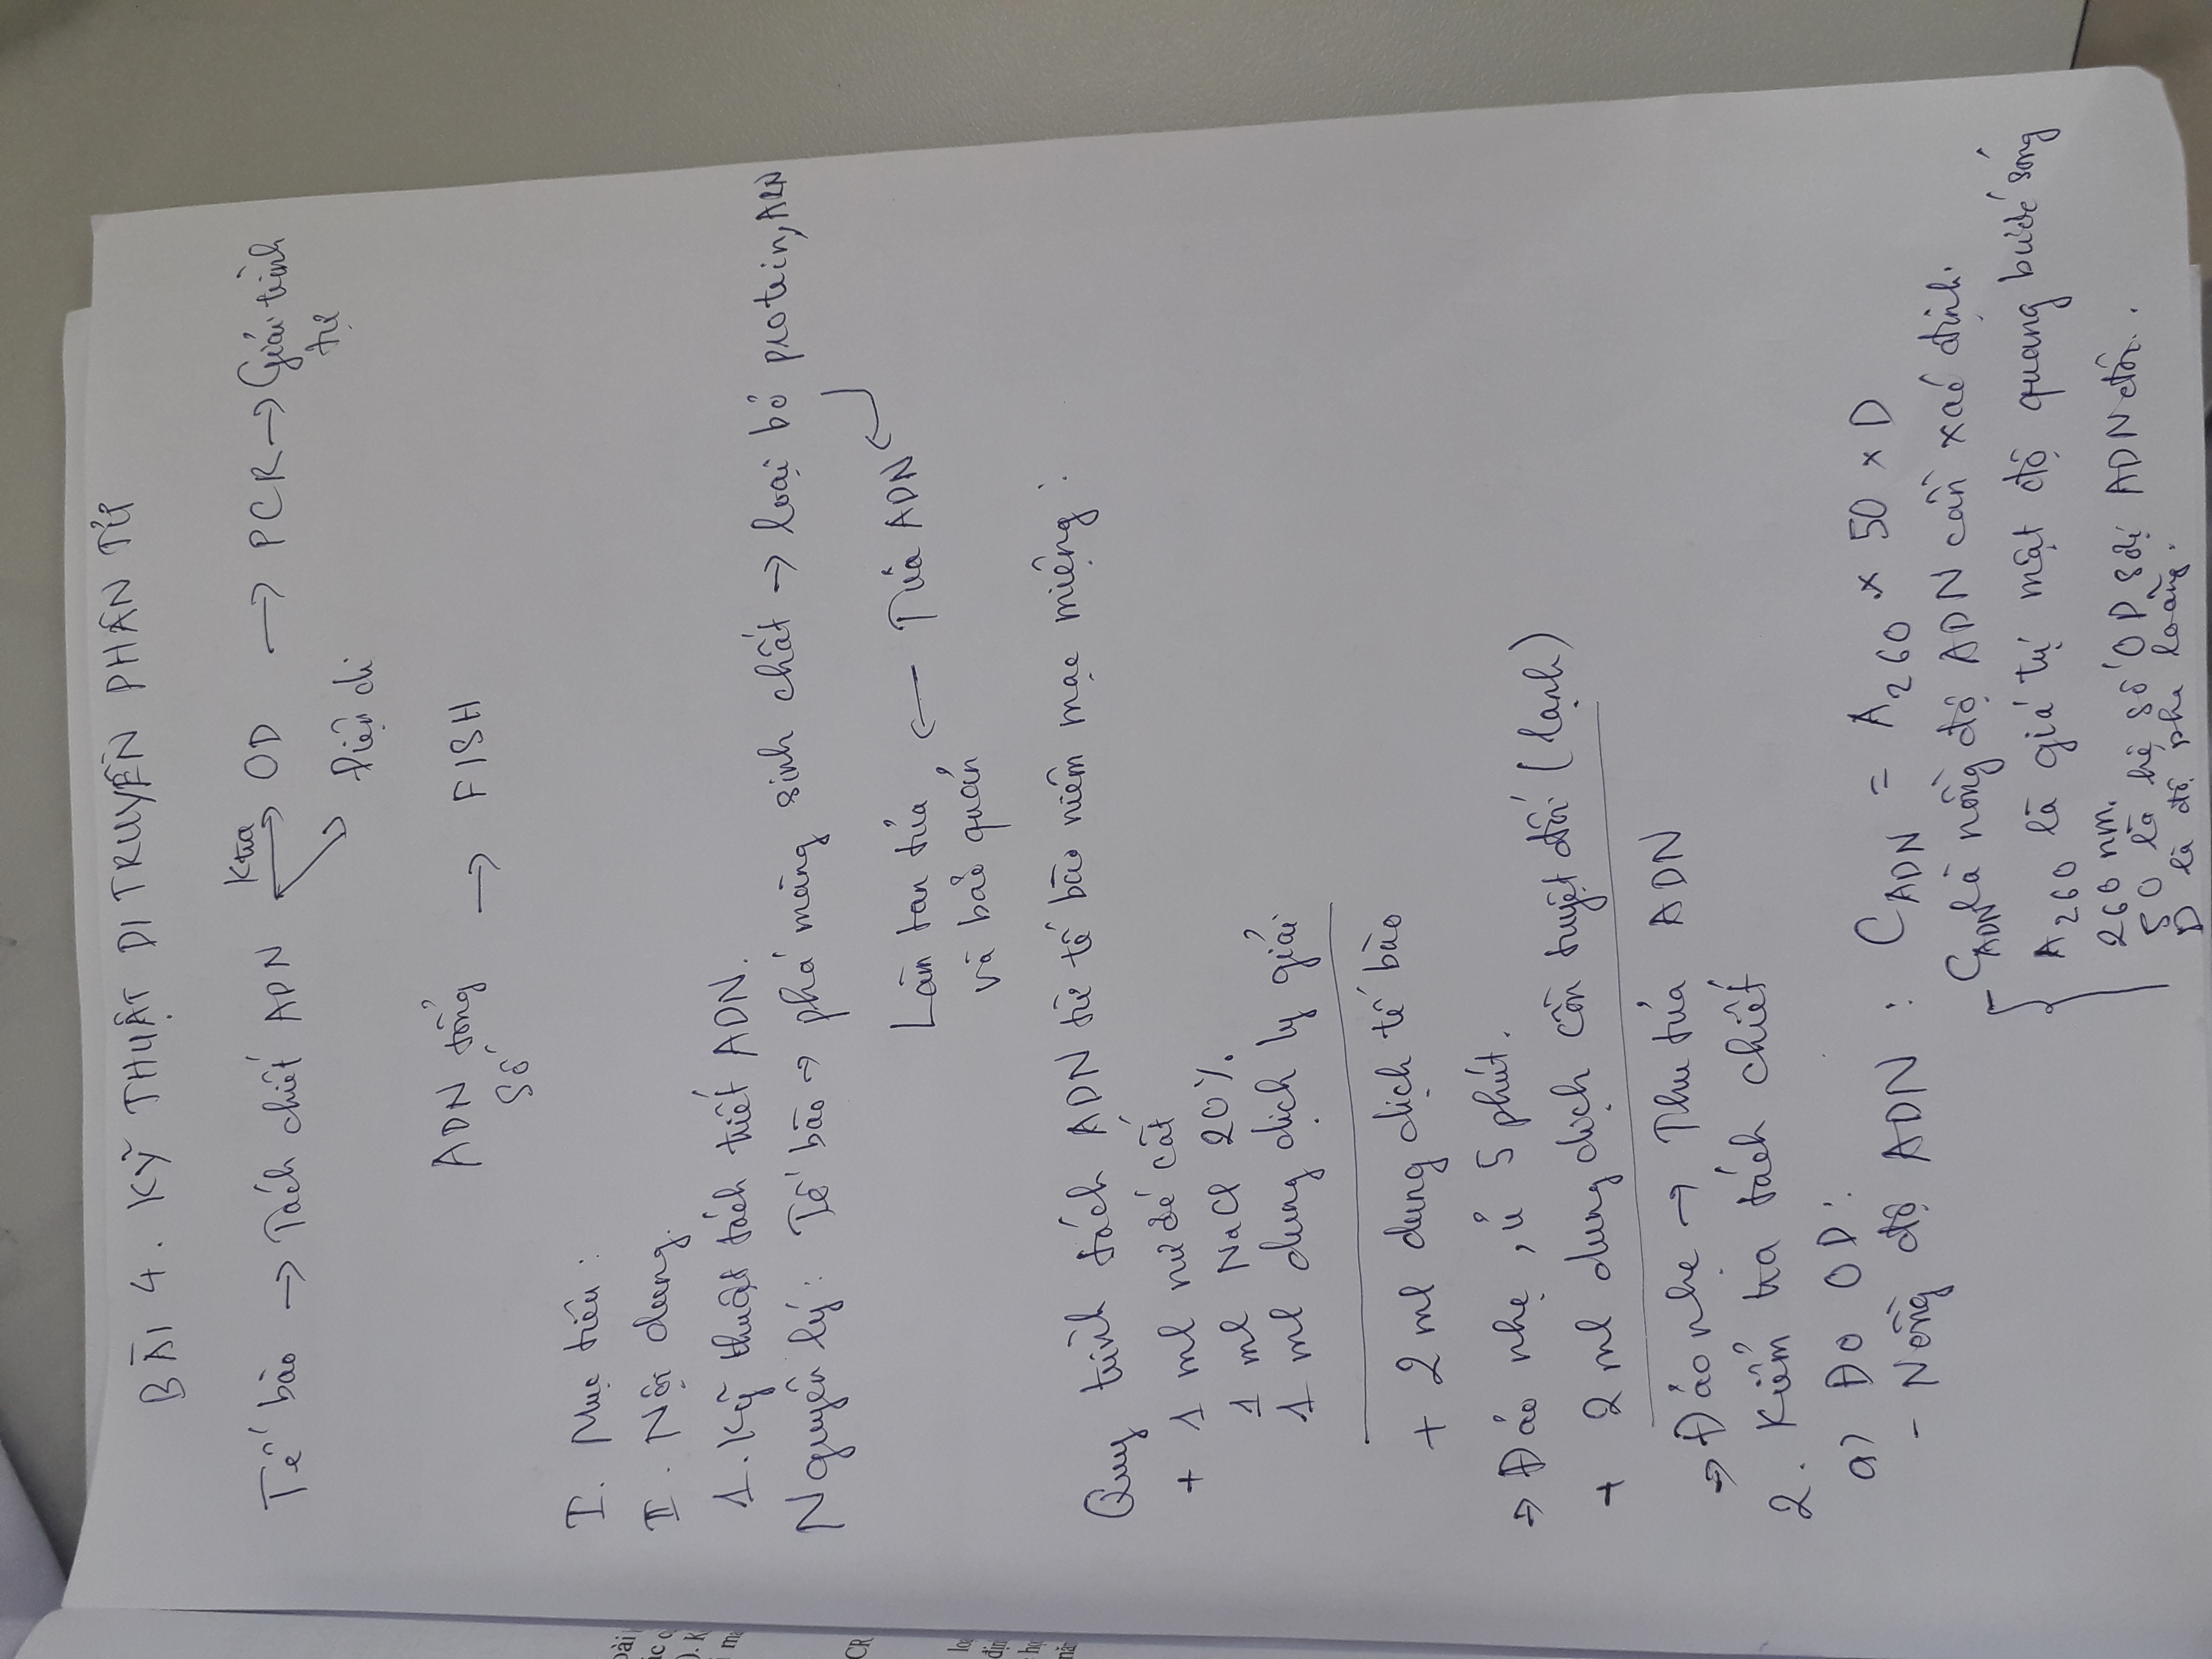 BÀI 4. KỸ THUẬT DI TRUYỀN PHÂN TỬ
Ktra
Tế bào → Tách chiết ADN → OD → PCR → Giải trình
tự
Điện di
ADN tổng → FISH
số
I. Mục tiêu:
II. Nội dung.
1. Kỹ thuật tách tiết ADN.
Nguyên lý: Tế bào → phá màng sinh chất → loại bỏ protein, ARN
Làm tan tủa ← Tủa ADN
và bảo quản
Quy trình tách ADN từ tế bào niêm mạc miệng:
+ 1 ml nước cất
1 ml NaCl 20%.
1 ml dung dịch ly giải
+ 2 ml dung dịch tế bào
→ Đảo nhẹ, ủ 5 phút.
+ 2 ml dung dịch cồn tuyệt đối (lạnh)
→ Đảo nhẹ → Thu tủa ADN
2. Kiểm tra tách chiết
a) Đo OD:
- Nồng độ ADN: C_ADN = A_260 × 50 × D
C_ADN là nồng độ ADN cần xác định.
A_260 là giá trị mật độ quang bước sóng
260 nm.
50 là hệ số OD sợi ADN đôi.
D là độ pha loãng.